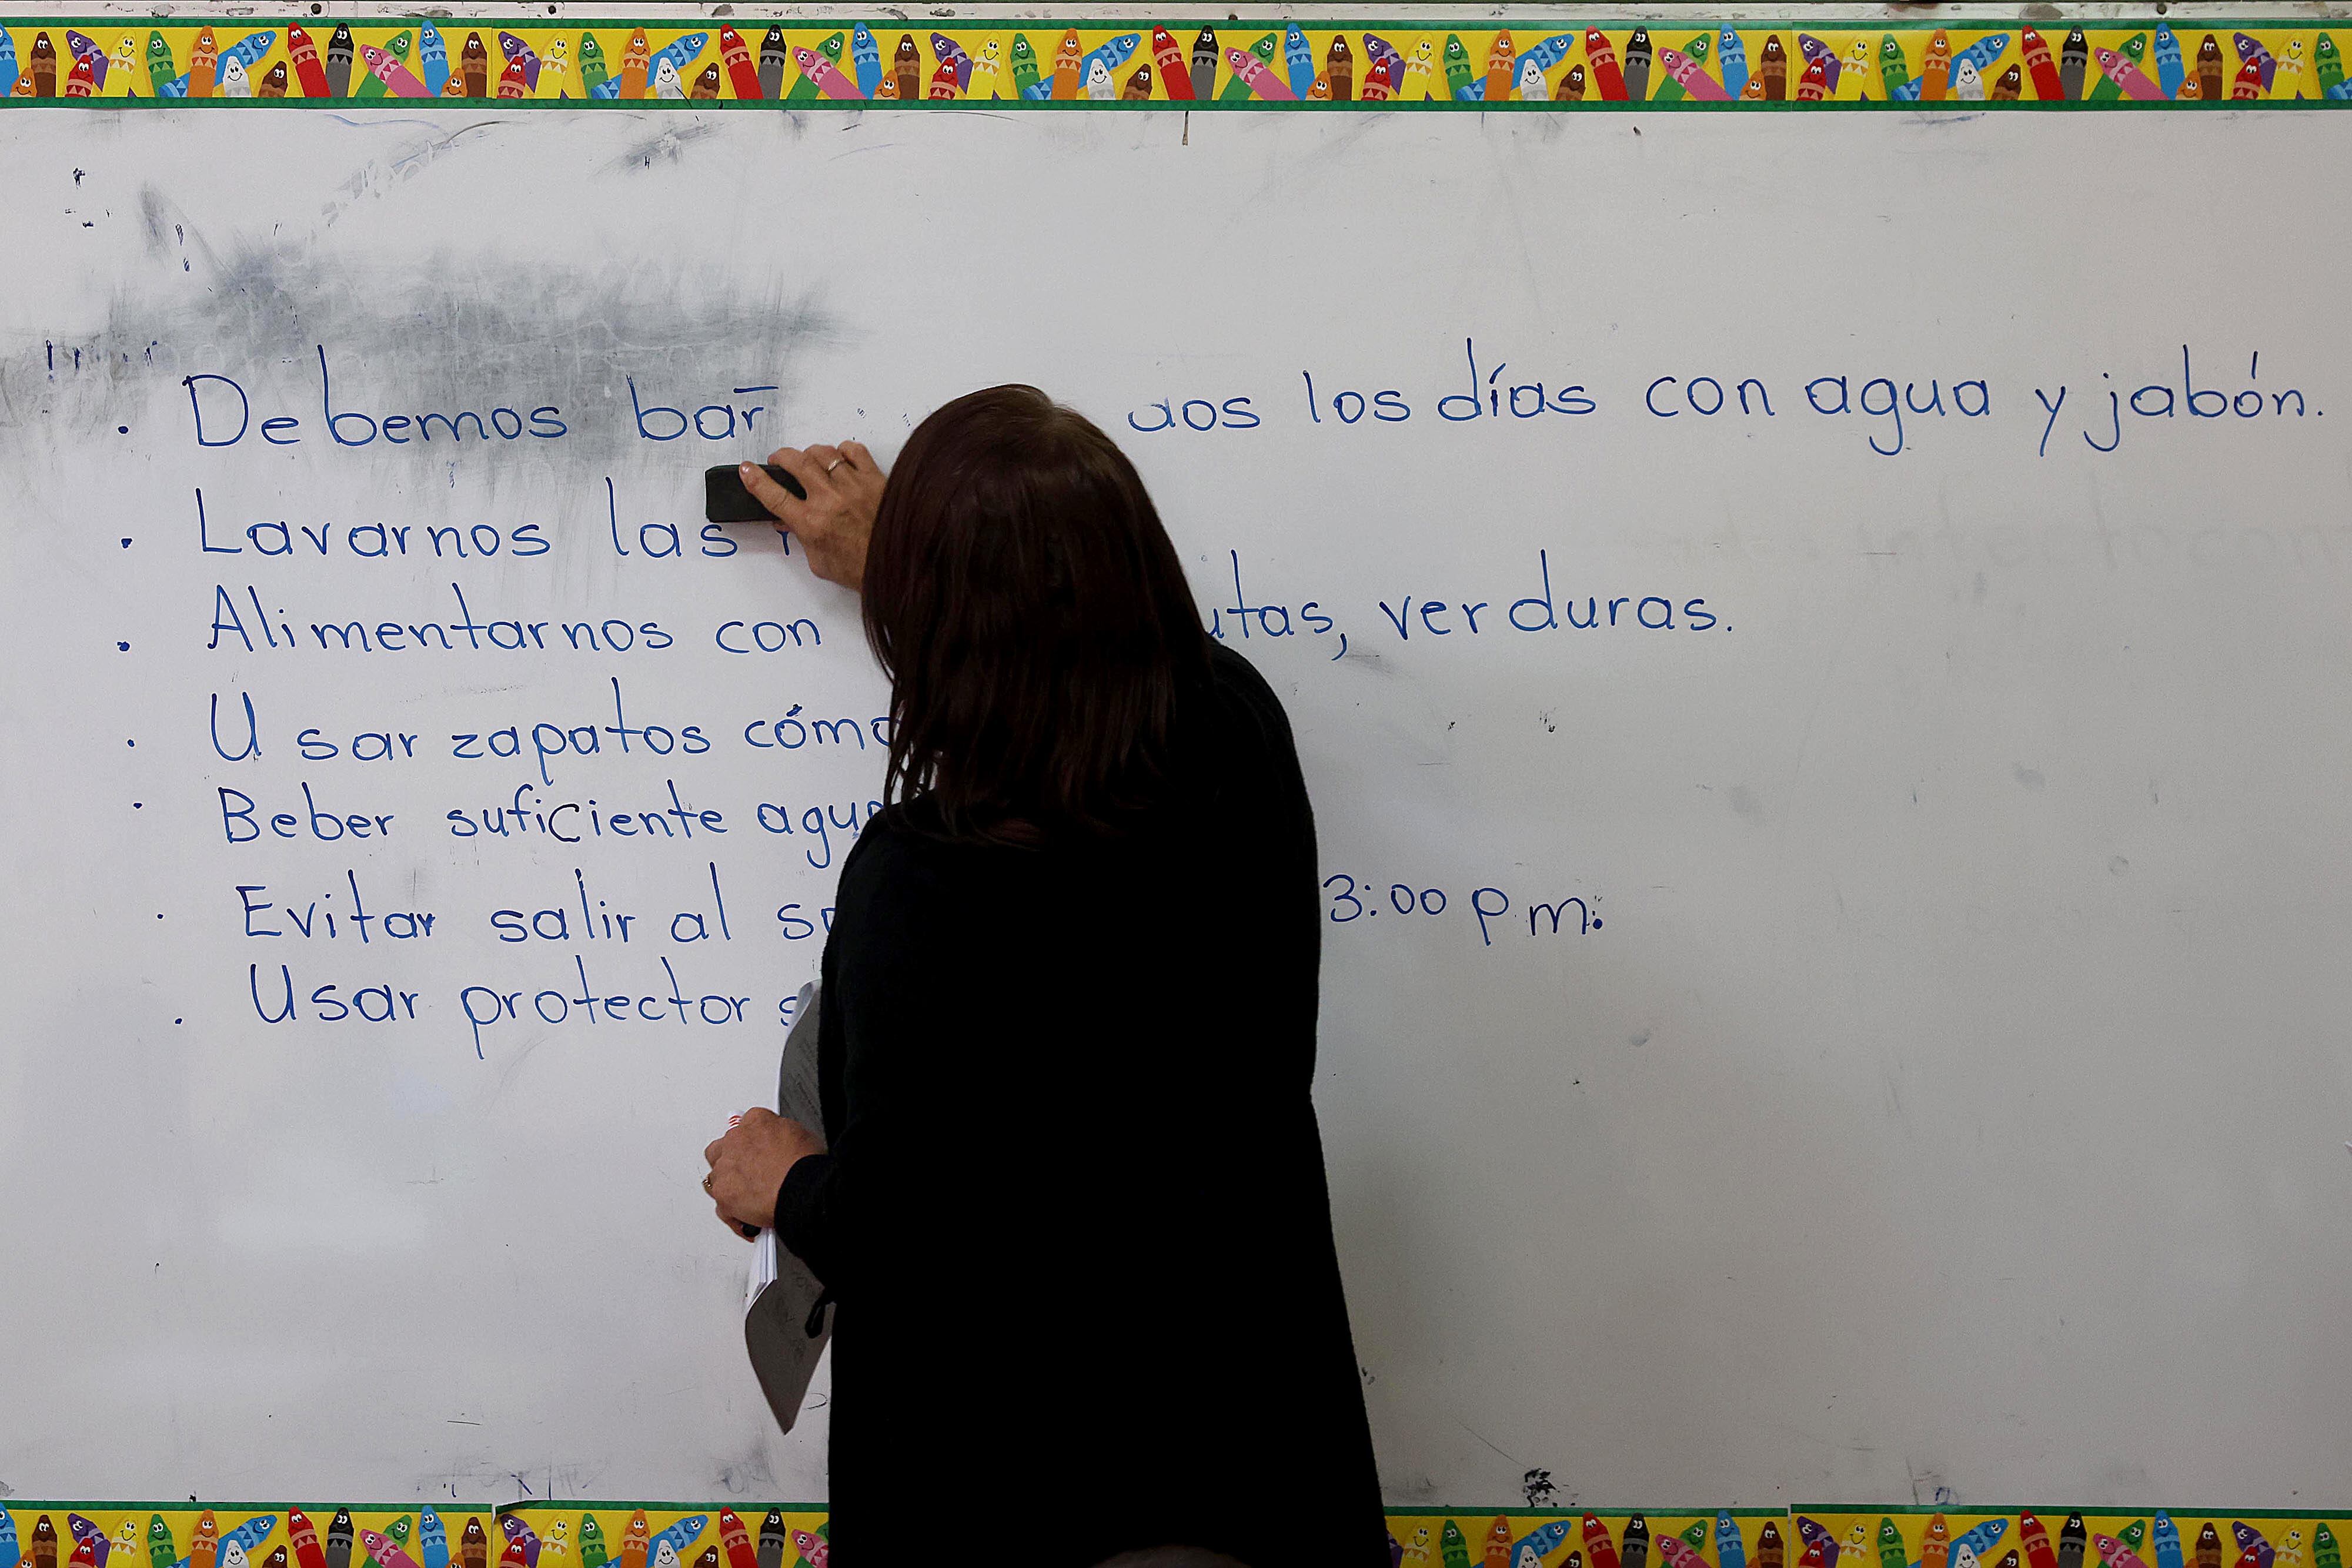 . Debemos los días con agua y jabón.
. Lavarnos las
. Alimentarnos con verduras.
. Usar zapatos
. Beber suficiente
. Evitar salir al 3:00 p.m.
. Usar protector